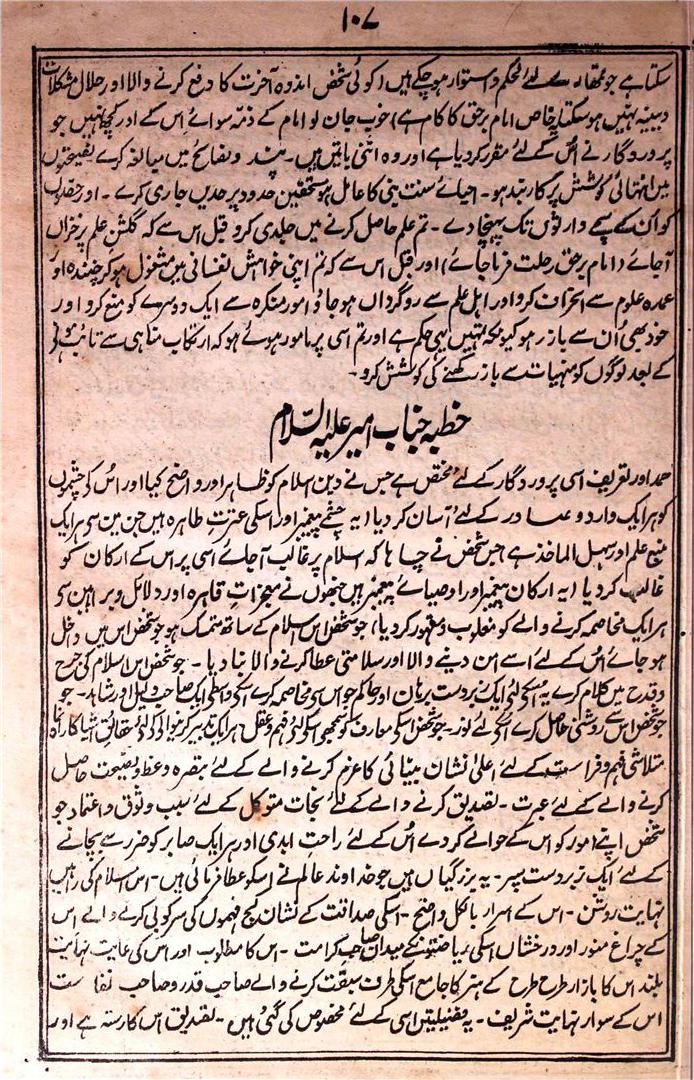 ۱۰۷
سکتا ہے جو تمھارے لئے محکم و استوار ہو چکے ہیں (کوئی شخص اندوہ آخرت کا دفع کرنے والا اور حلال مشکلات
دینیہ نہیں ہو سکتا یہ خاص امام برحق کا کام ہے) خوب جان لو امام کے ذمہ سوائے اس کے اور کچھ نہیں جو
پروردگار نے اُس کے لئے مقرر کر دیا ہے اور وہ اتنی باتیں ہیں۔ پند و نصائح میں مبالغہ کرے نصیحتوں
میں انتہائی کوشش پر کاربند ہو۔ احیائے سنت نبی کا عامل ہو مستحقین حدود پر حدیں جاری کرے۔ اور حقوں
کو اُن کے سچے وارثوں تک پہنچا دے۔ تم علم حاصل کرنے میں جلدی کرو قبل اس سے کہ گلشن علم پر خزاں
آجائے (امام برحق رحلت فرما جائے) اور قبل اس سے کہ تم اپنی خواہش نفسانی میں مشغول ہو کر چندہ اور
عمدہ علوم سے انحراف کرو اور اہل علم سے روگرداں ہو جاؤ امور منکرہ سے ایک دوسرے کو منع کرو اور
خود بھی اُن سے باز رہو کیونکہ تمہیں یہی حکم ہے اور تم اسی پر مامور ہوئے ہو کہ ارتکاب مناہی سے تائب ہونے
کے بعد لوگوں کو منہیات سے باز رکھنے کی کوشش کرو۔
خطبہ جناب امیر علیہ السّلام
حمد اور تعریف اسی پروردگار کے لئے مختص ہے جس نے دین اسلام کو ظاہر اور واضح کیا اور اُس کے چشموں
کو ہر ایک وارد و صادر کے لئے آسان کر دیا (یہ چشمے پیغمبر اور اسکی عترت طاہرہ ہیں جن میں سے ہر ایک
منبع علم اور سہل الماخذ ہے جس شخص نے چاہا کہ اسلام پر غالب آجائے اسی پر اس کے ارکان کو
غالب کر دیا (یہ ارکان پیغمبر اور اوصیائے پیغمبر ہیں جنھوں نے معجزاتِ قاہرہ اور دلائل و براہین سے
ہر ایک مخاصمہ کرنے والے کو مغلوب و مقہور کر دیا) جو شخص اس اسلام کے ساتھ متمسک ہو جو شخص اس میں داخل
ہو جائے اُس کے لئے اسے امن دینے والا اور سلامتی عطا کرنے والا بنا دیا۔ جو شخص اس اسلام کی جرح
و قدح میں کلام کرے یہ اسکے لئے ایک زبردست برہان اور حاکم جو اس سے مخاصمہ کرے اسکے واسطے ایک صاحب دلیل اور شاہد۔ جو
جو شخص اس سے روشنی حاصل کرے اُسکے لئے نور۔ جو شخص اسکے معارف کو سمجھے اسکے لئے فہم و عقل۔ ہر ایک تدبیر کرنیوالے کے لئے حقائق اشیا کا راہنما
متلاشی فہم و فراست کے لئے اعلیٰ نشان بینائی کا عزم کرنے والے کے لئے تبصرہ وعظ و نصیحت حاصل
کرنے والے کے لئے عبرت۔ تصدیق کرنے والے کے لئے نجات متوکل کے لئے سبب وثوق و اعتماد جو
شخص اپنے امور کو اس کے حوالے کر دے اُس کے لئے راحت ابدی اور ہر ایک صابر کو ضرر سے بچانے
کے لئے ایک زبردست سپر۔ یہ بزرگیاں ہیں جو خداوند عالم نے اسکو عطا فرمائی ہیں۔ اس اسلام کی راہیں
نہایت روشن۔ اس کے اسرار بالکل واضح۔ اسکی صداقت کے نشان کج فہموں کی سرکوبی کرنے والے اس
کے چراغ منور اور درخشاں اسکی ریاضتوں کے میدان صاحب کرامت۔ اس کا مطلوب اور اس کی غایت نہایت
بلند اس کا بازار طرح طرح کے ہنر کا جامع اسکی طرف سبقت کرنے والے صاحب قدر و صاحب نفاست
اس کے سوار نہایت شریف۔ یہ فضیلتیں اسی کے لئے مخصوص کی گئی ہیں۔ تصدیق اس کا رستہ ہے اور